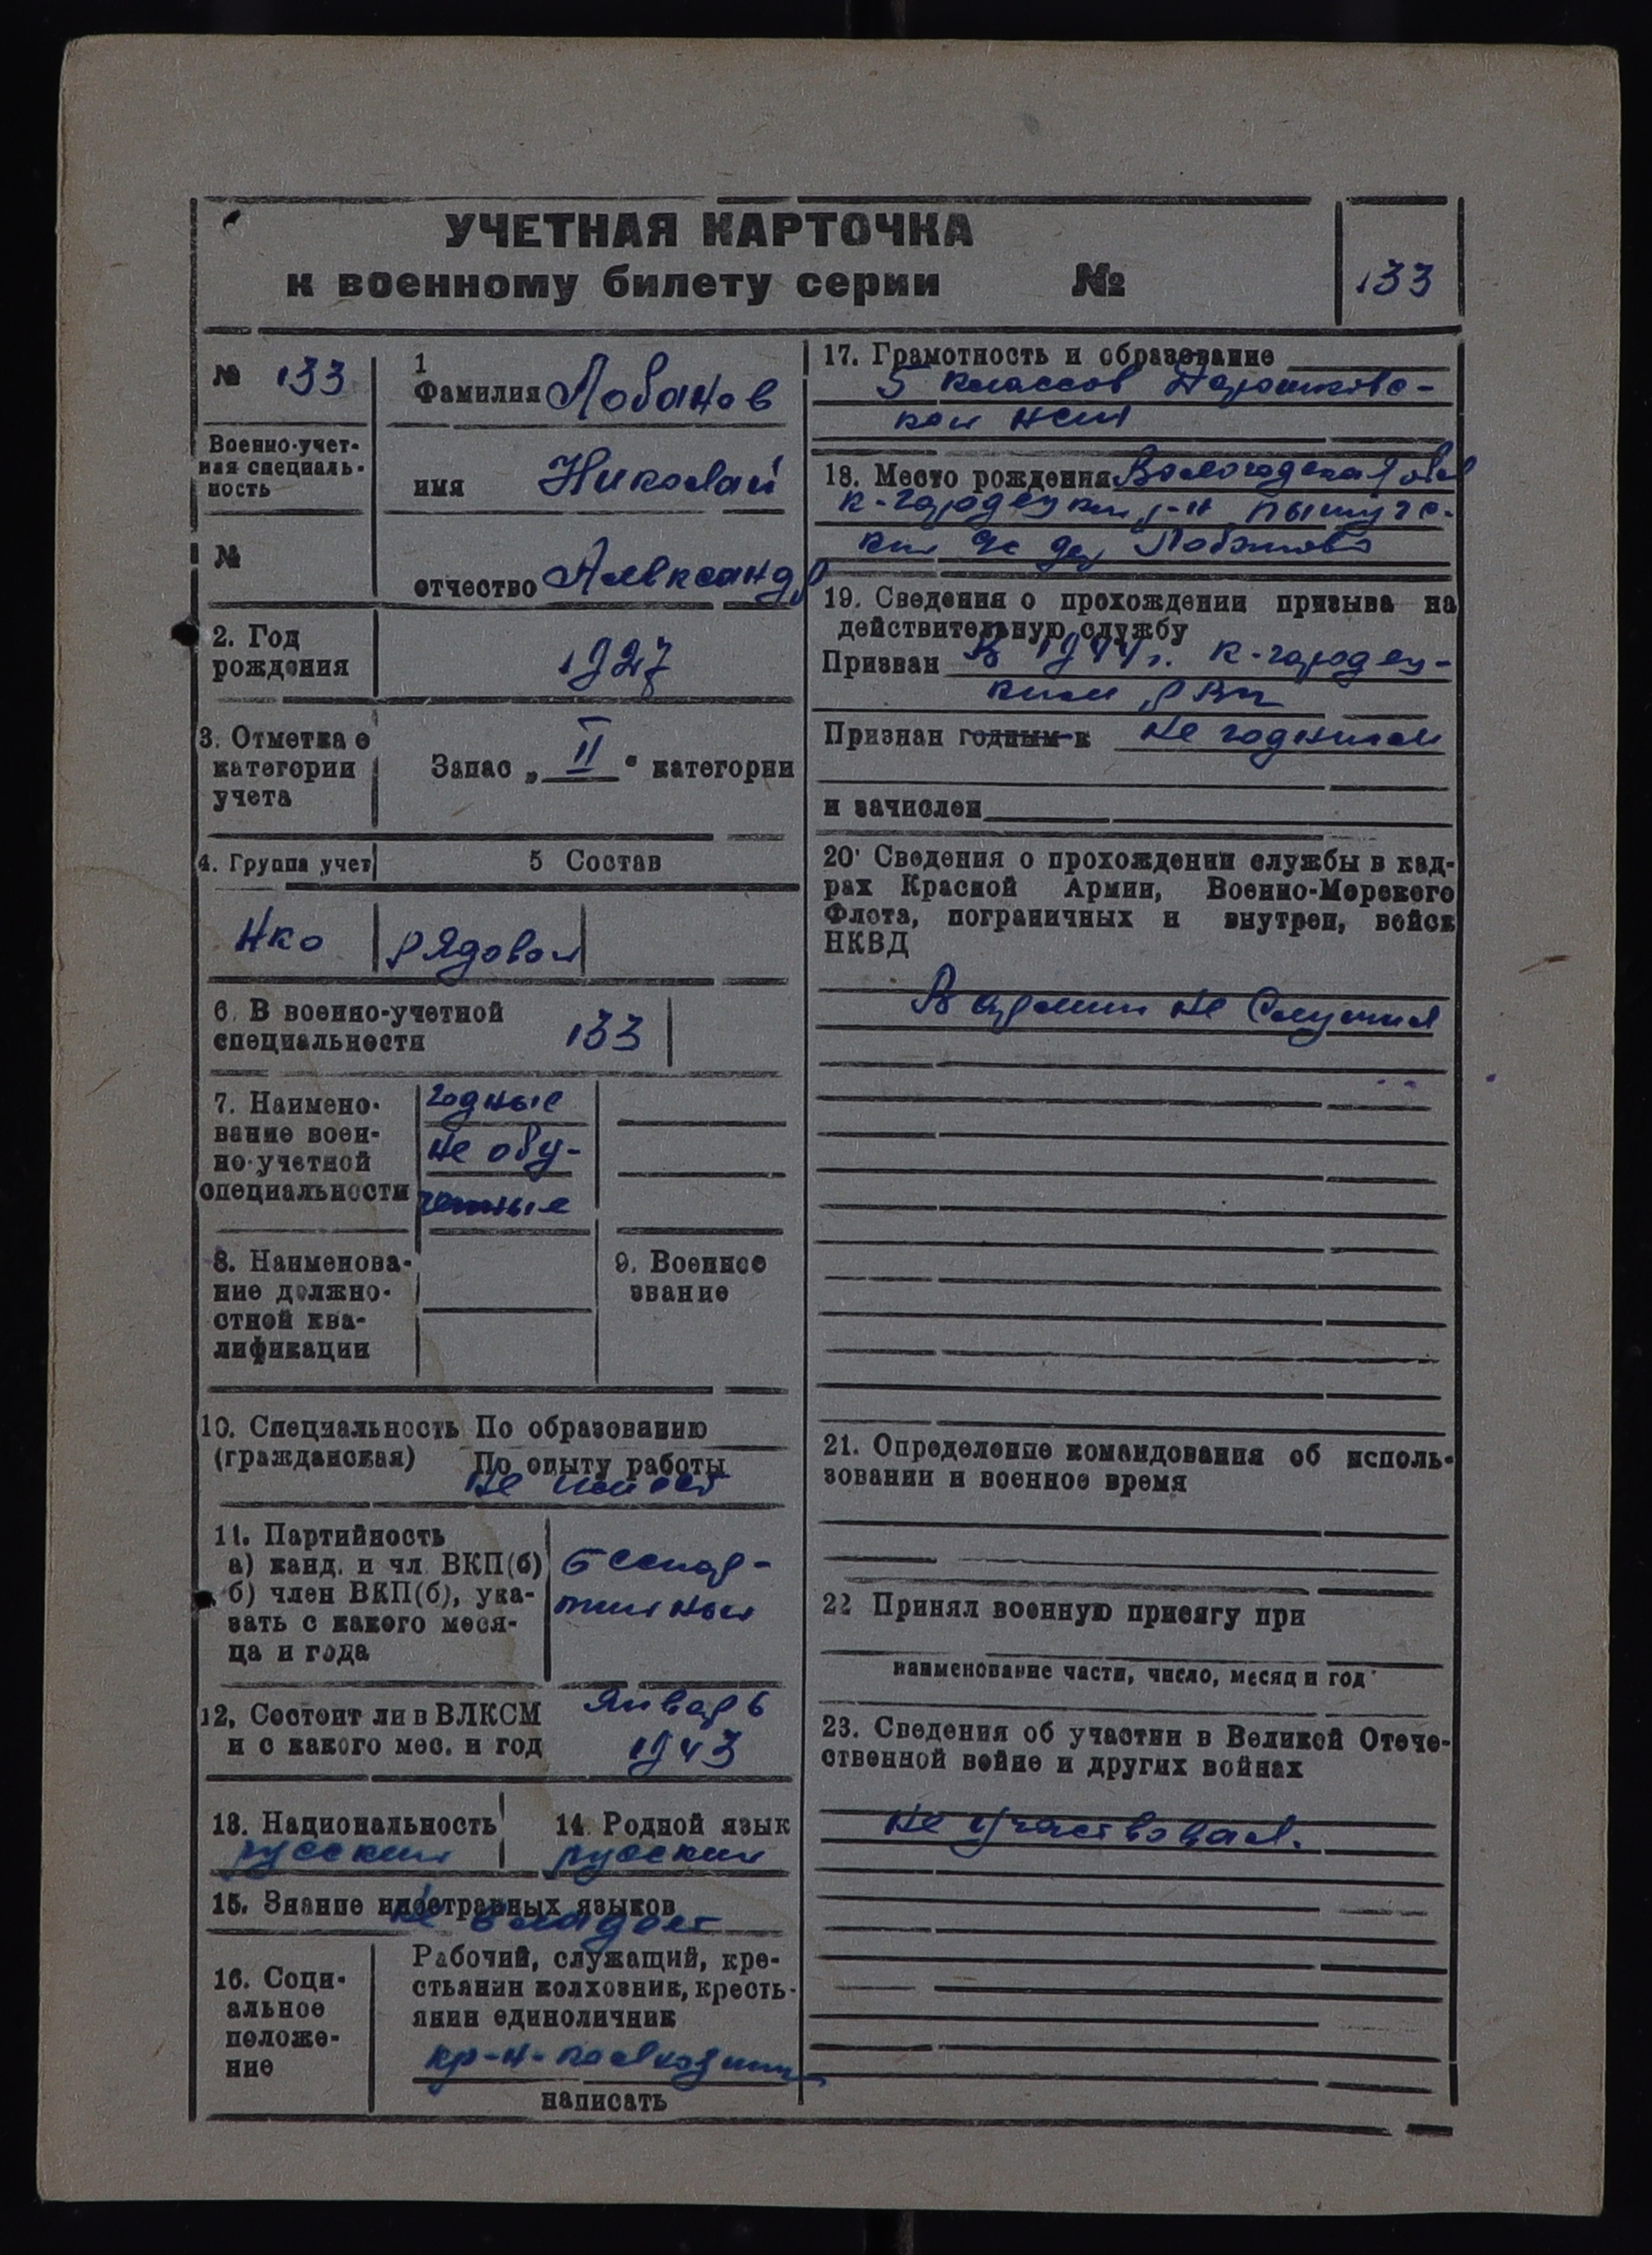 УЧЕТНАЯ КАРТОЧКА
к военному билету серии №
133
№ 133
Военно-учет-
ная специаль-
ность
№
1
Фамилия Лобанов
имя Николай
отчество Александр
2. Год
рождения
1927
3. Отметка о
категории
учета
Запас „ II " категории
4. Группа учет
5 Состав
Нко
рядовой
6. В военно-учетной
специальности
133
7. Наимено-
вание воен-
но-учетной
специальности
годные
не обу-
ченные
8. Наименова-
ние должно-
стной ква-
лификации
9. Военное
звание
10. Специальность По образованию
(гражданская) По опыту работы
не имеет
11. Партийность
а) канд. и чл ВКП(б)
б) член ВКП(б), ука-
зать с какого меся-
ца и года
беспар-
тийный
12, Состоит ли в ВЛКСМ
и с какого мес. и год
январь
1943
13. Национальность
русский
14. Родной язык
русский
15. Знание иностранных языков
не владеет
16. Соци-
альное
положе-
ние
Рабочий, служащий, кре-
стьянин колхозник, кресть-
янин единоличник
кр-н-колхозник
написать
17. Грамотность и образование
5 классов
кой нсш
18. Место рождения Вологодская обл
К-городецкий р-н
дер Лобаново
19. Сведения о прохождении призыва на
действительную службу
Призван В 1944 г. К-городец-
ким РВК
Признан годным к не годным
и зачислен
20. Сведения о прохождении службы в кад-
рах Красной Армии, Военно-Морского
Флота, пограничных и внутрен, войск
НКВД
В армии не служил
21. Определение командования об исполь-
зовании и военное время
22 Принял военную присягу при
наименование части, число, месяц и год
23. Сведения об участии в Великой Отече-
ственной войне и других войнах
не участвовал.